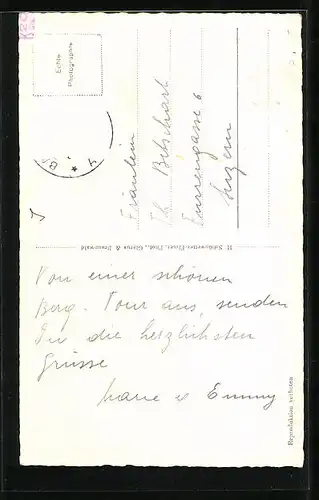 Echte
Photographie
Fräulein
Th. Betschart
Furrengasse 6
Luzern
H. Schönwetter-Elmer, Phot., Glarus & Braunwald
Von einer schönen
Berg-Tour aus, senden
Dir die herzlichsten
Grüsse
Marie u Emmy
Reproduktion verboten